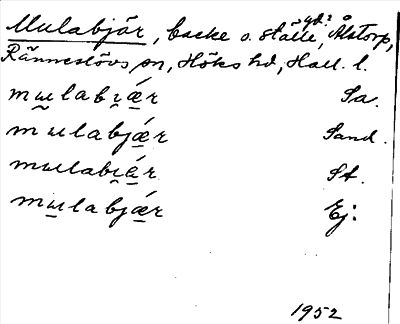 Mulabjär, backe o. ställe, gd? Ålstorp,
Ränneslövs sn, Höks hd, Hall. l.
mɯlabı̯ǽr Sa.
mɯlabjǽr Sand.
mɯlabı̯ǽr St.
mɯlabjǽr Ej:
1952